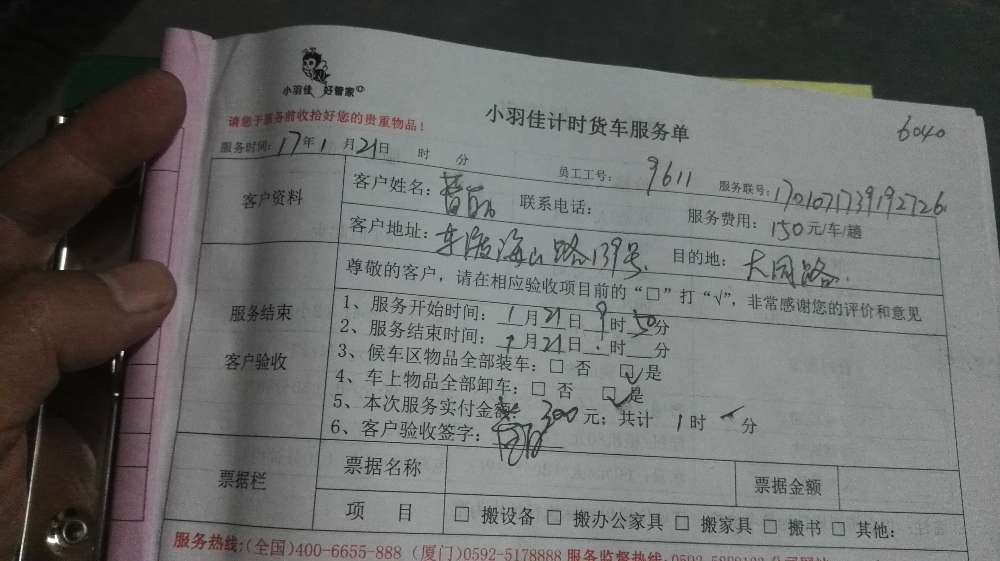 小羽佳 好管家
小羽佳计时货车服务单
6040
请您于服务前收拾好您的贵重物品！
服务时间：17年1月21日 时 分
员工工号：9611
服务联号：1701071739192726
客户资料
客户姓名：
联系电话：
服务费用：150元/车/趟
客户地址：海山路139号
目的地：大同路
尊敬的客户，请在相应验收项目前的“□”打“√”，非常感谢您的评价和意见
服务结束
客户验收
1、服务开始时间：1月21日9时50分
2、服务结束时间：1月21日 时 分
3、候车区物品全部装车：□ 否 ☑ 是
4、车上物品全部卸车：□ 否 ☑ 是
5、本次服务实付金额：300元；共计 1时 分
6、客户验收签字：
票据栏
票据名称
票据金额
项 目
□ 搬设备 □ 搬办公家具 □ 搬家具 □ 搬书 □ 其他：
服务热线：(全国)400-6655-888 (厦门)0592-5178888 服务监督热线：